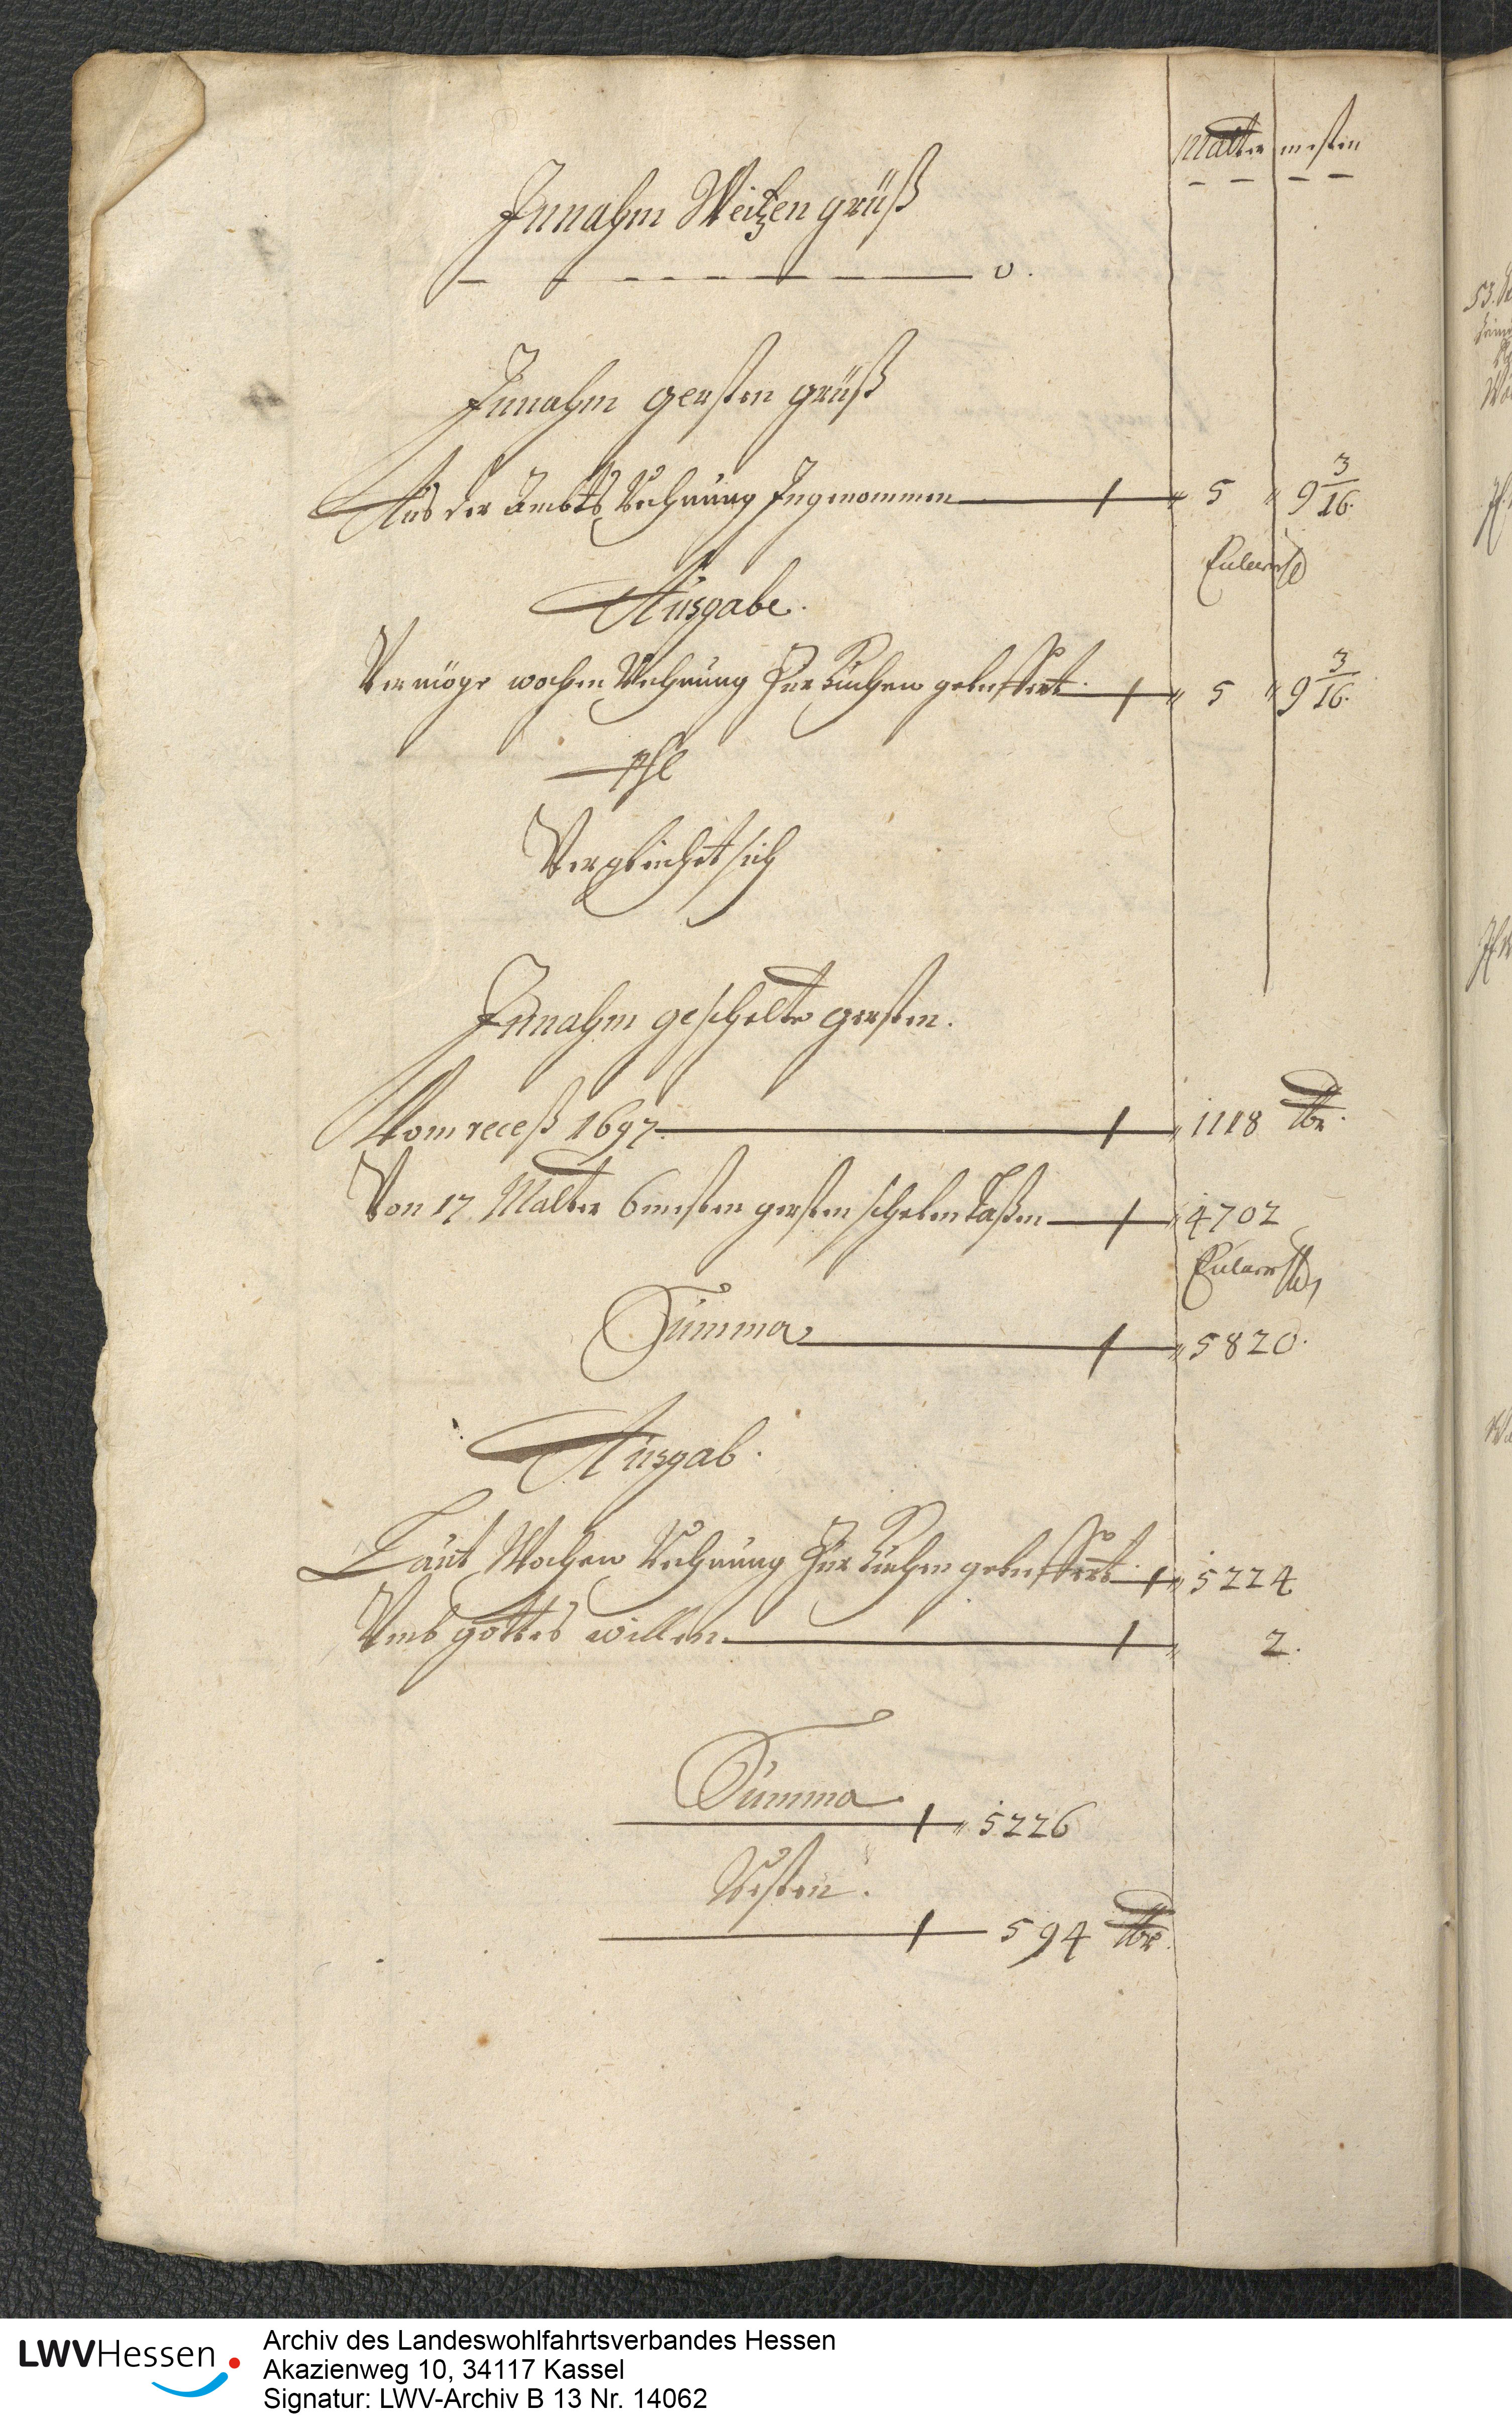 Malter mesten
Innahm Weitzen grüß
0.
Innahm gersten grüß
Aus der Ambts Rechnung Ingenommen „ 5 „ 9 3/16.
Ausgabe.
Vermöge wochen Rechnung Zur Küchen geliffert. „ 5 „ 9 3/16.
Vergleichet sich
Innahm geschelte gersten.
Vom receß 1697. „ 1118 lb.
Von 17 Malter 6 mesten gersten schelen Laßen „ 4702
Summa „ 5820.
Ausgab.
Laut Wochen Rechnung Zur Küchen geliffert. „ 5224
Umb gottes willen „ 2.
Summa „ 5226
Resten.
594 lb.
53.
LWVHessen
Archiv des Landeswohlfahrtsverbandes Hessen
Akazienweg 10, 34117 Kassel
Signatur: LWV-Archiv B 13 Nr. 14062